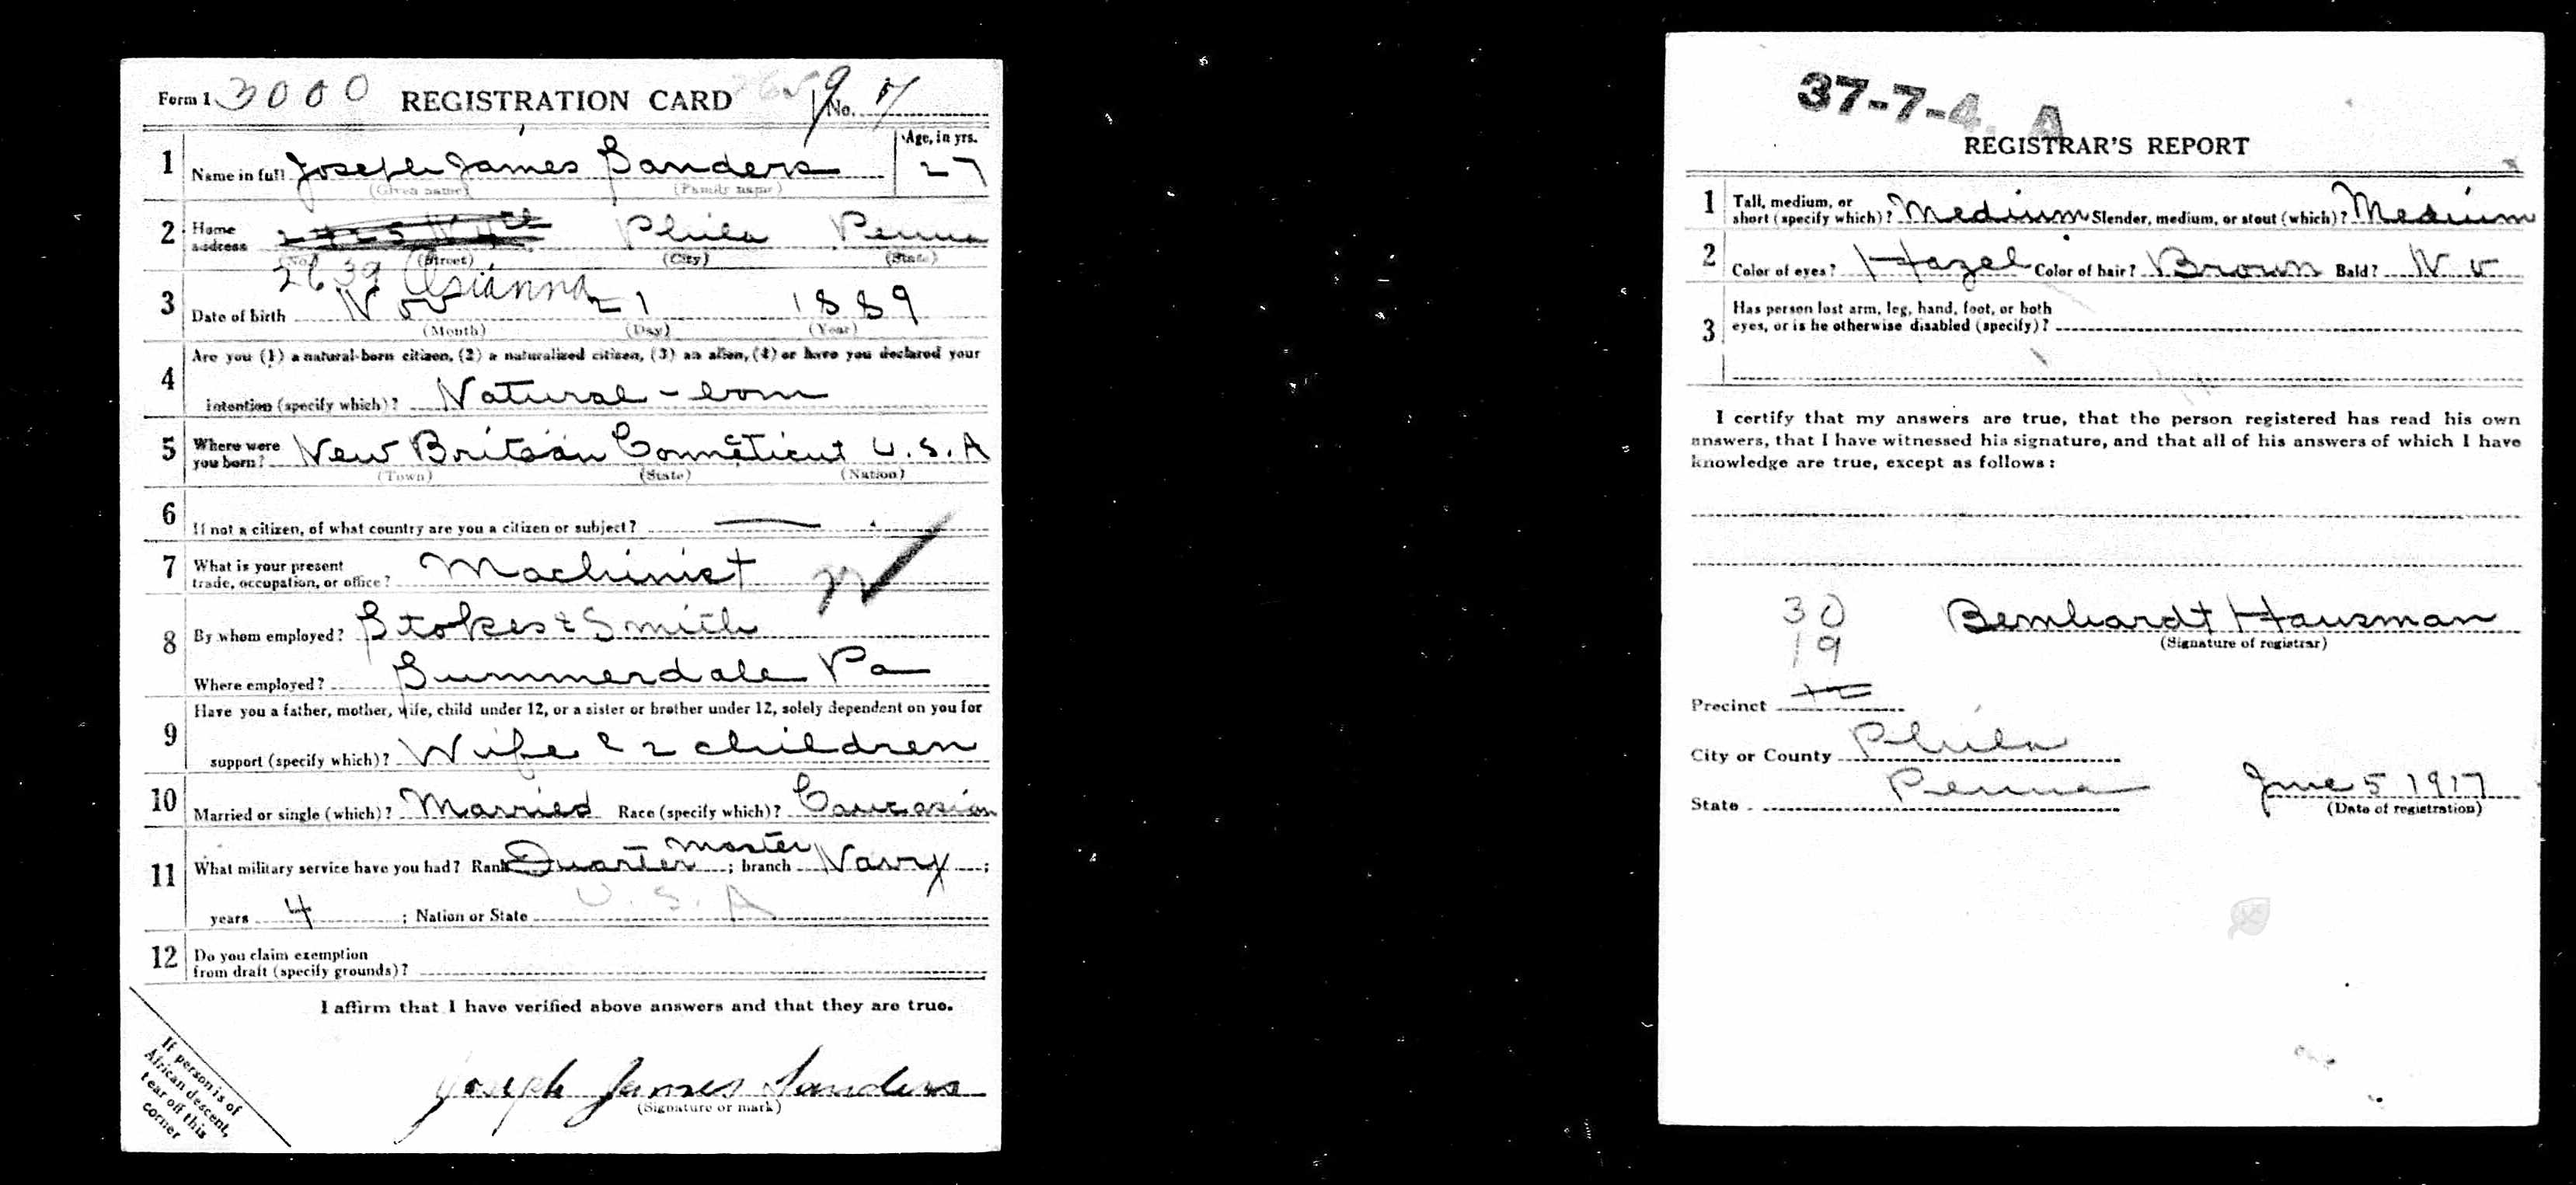 Form 1 3000 REGISTRATION CARD No. 97
1 Name in full Joseph James Sanders Age, in yrs. 27
(Given name) (Family name)
2 Home address Phila Penna
(No.) (Street) (City) (State)
2639
3 Date of birth Nov 21 1889
(Month) (Day) (Year)
Are you (1) a natural-born citizen, (2) a naturalized citizen, (3) an alien, (4) or have you declared your
4 intention (specify which)? Natural-born
5 Where were you born? New Britain Conneticut U.S.A
(Town) (State) (Nation)
6 If not a citizen, of what country are you a citizen or subject? —
7 What is your present
trade, occupation, or office? Machinist
8 By whom employed? Stokes & Smith
Where employed? Summerdale Pa
Have you a father, mother, wife, child under 12, or a sister or brother under 12, solely dependent on you for
9 support (specify which)? Wife & 2 children
10 Married or single (which)? Married Race (specify which)? Caucasian
11 What military service have you had? Rank Quarter master ; branch Navy ;
years 4 ; Nation or State U.S.A
12 Do you claim exemption
from draft (specify grounds)?
I affirm that I have verified above answers and that they are true.
Joseph James Sanders
(Signature or mark)
If person is of
African descent,
tear off this
corner
37-7-4. A
REGISTRAR'S REPORT
1 Tall, medium, or
short (specify which)? Medium Slender, medium, or stout (which)? Medium
2 Color of eyes? Hazel Color of hair? Brown Bald? No
3 Has person lost arm, leg, hand, foot, or both
eyes, or is he otherwise disabled (specify)?
I certify that my answers are true, that the person registered has read his own
answers, that I have witnessed his signature, and that all of his answers of which I have
knowledge are true, except as follows:
30
Bernhardt Hausman
19
(Signature of registrar)
Precinct
City or County Phila
State Penna June 5 1917
(Date of registration)